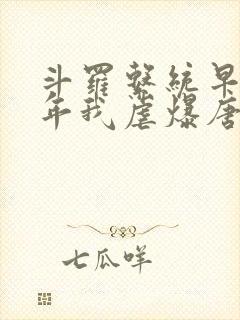 斗罗系统早
年我虐爆唐
七瓜咩